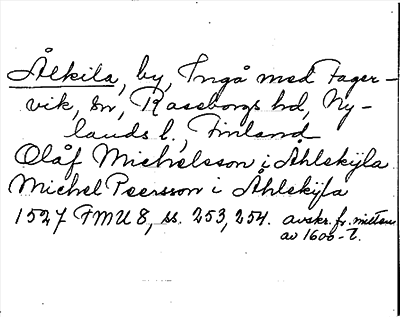 Ålkila, by, Ingå med Fager-
vik, sn, Raseborgs hd, Ny-
lands l., Finland
Olåf Michelsson i Åhlskÿla
Michel Peersson i Åhlskÿla
1527 FMU 8, ss. 253, 254. avskr. fr. mitten
av 1600-t.